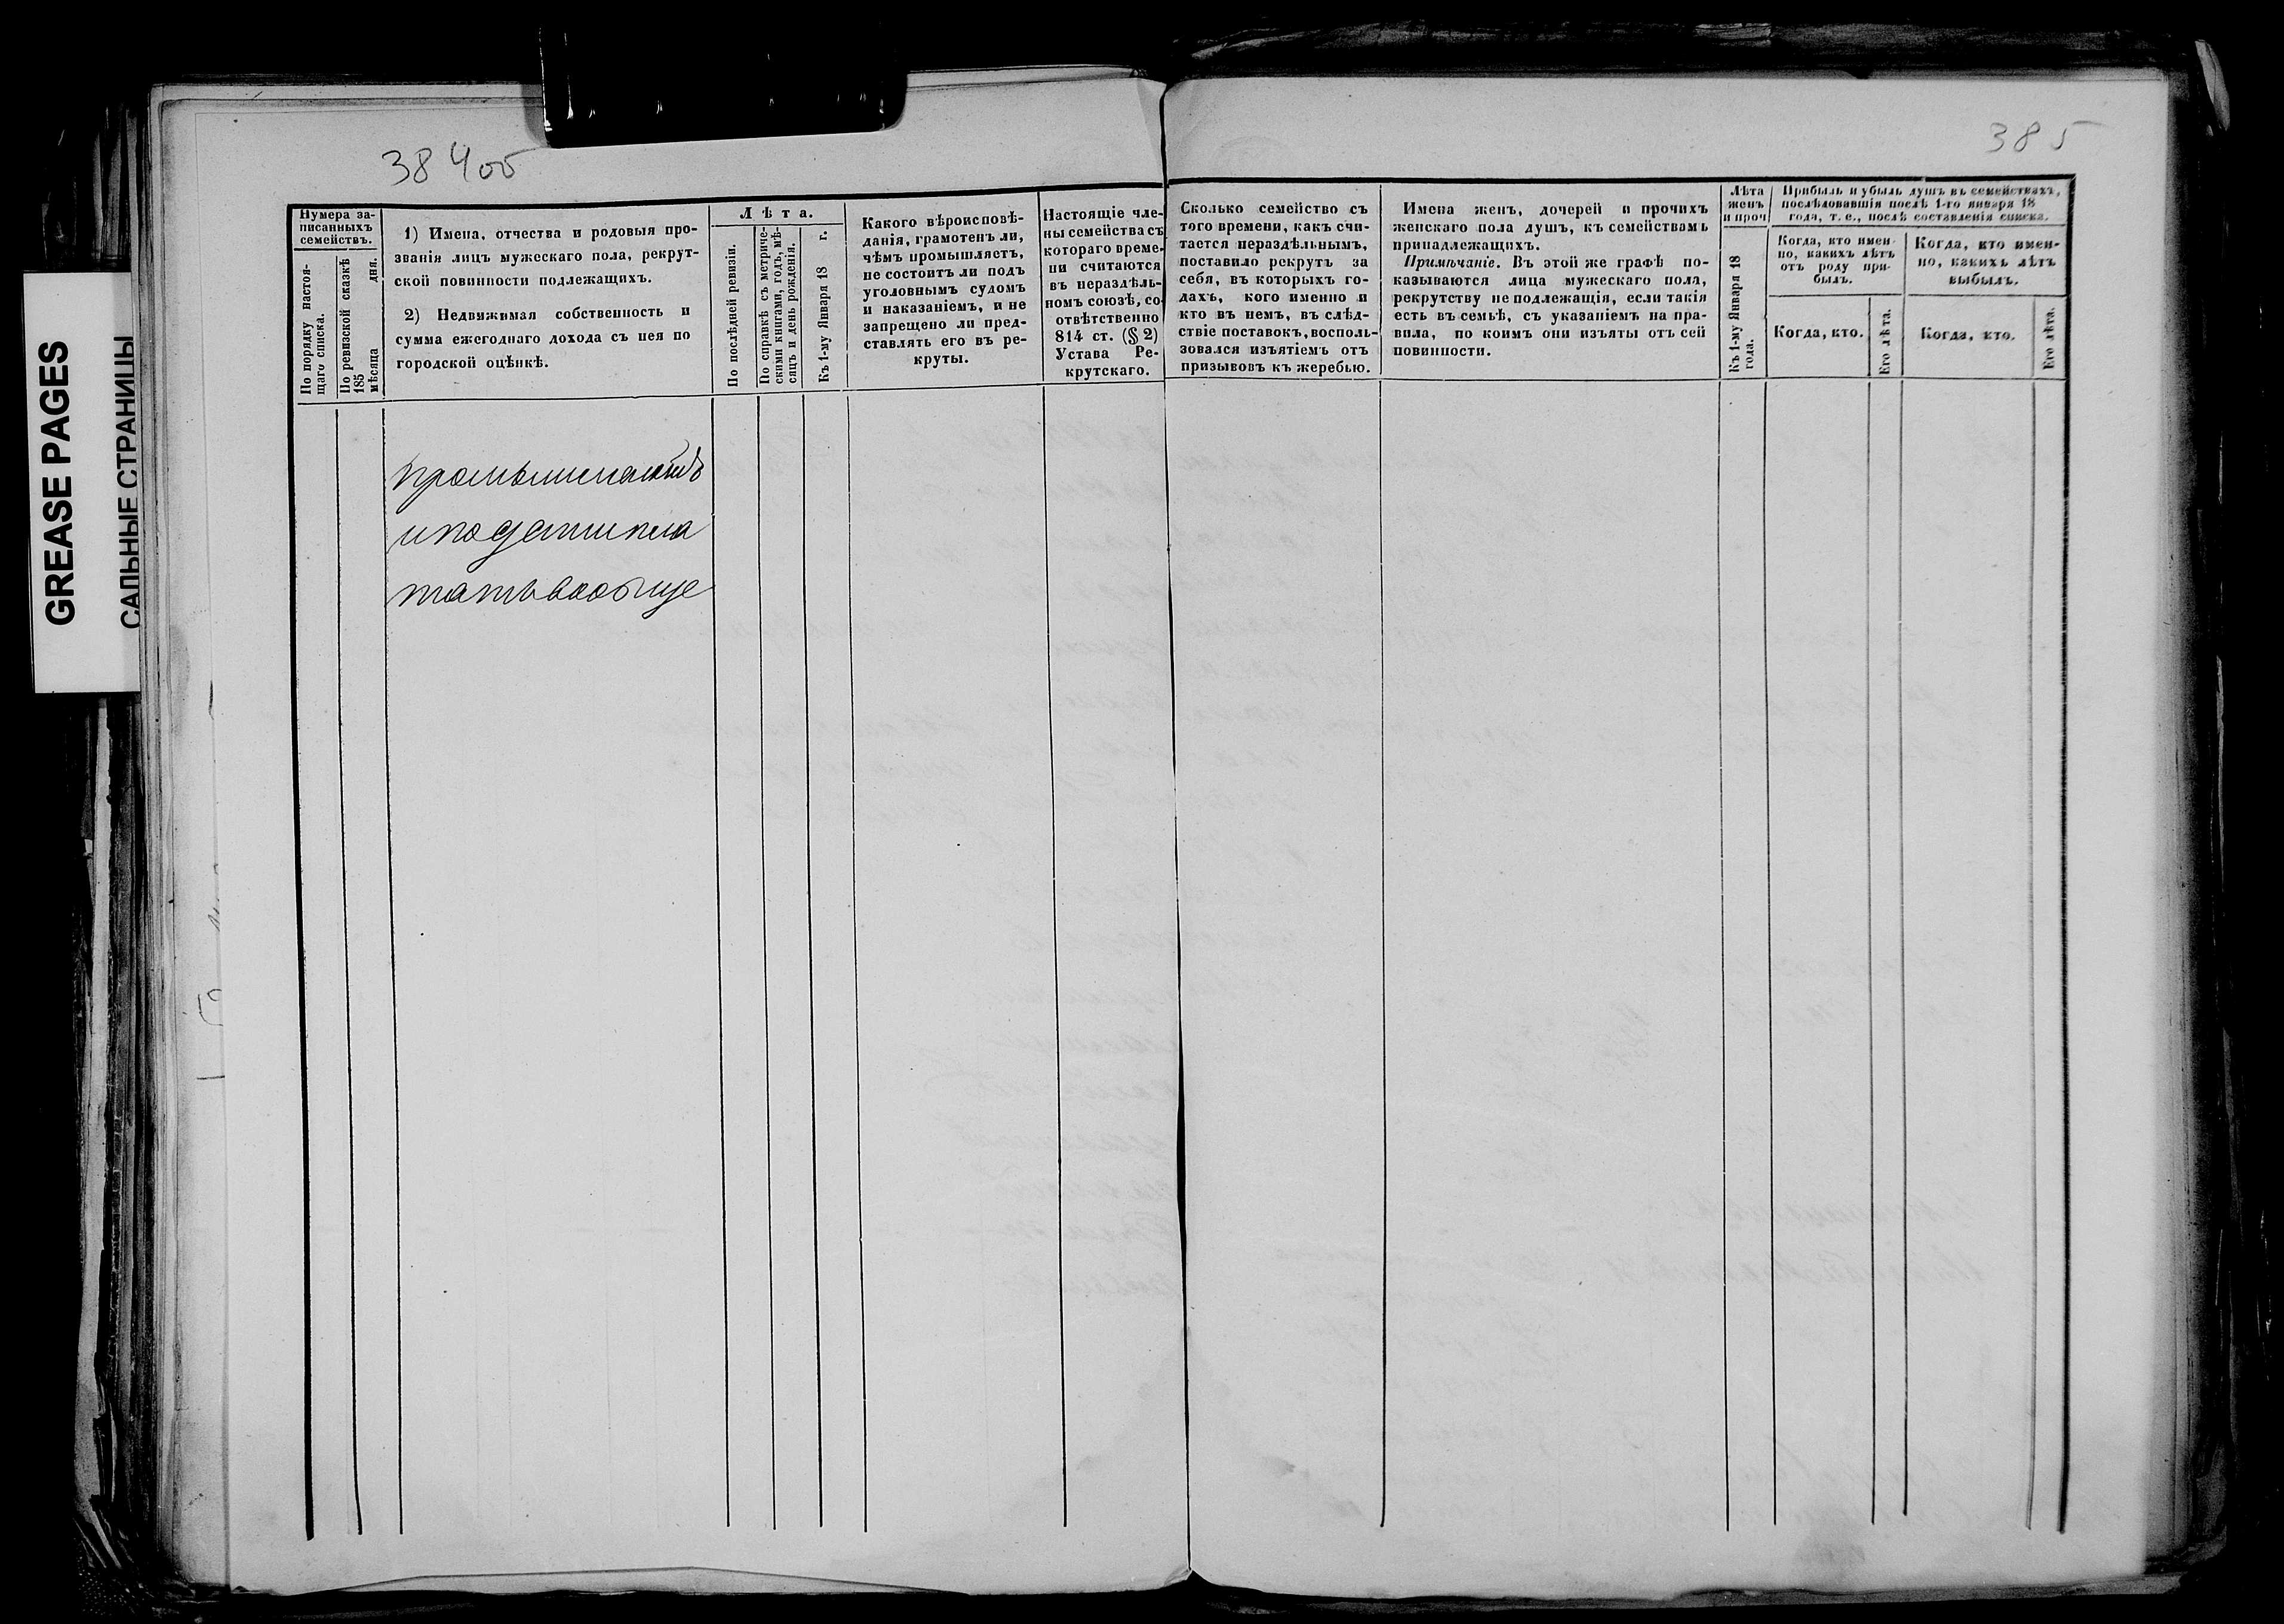 GREASE PAGES
САЛЬНЫЕ СТРАНИЦЫ
384об
385
Нумера за-
писанныхъ
семействъ.
По порядку настоя-
щаго списка.
По ревизской сказкѣ
185
мѣсяца дня.
1) Имена, отчества и родовыя про-
званія лицъ мужескаго пола, рекрут-
ской повинности подлежащихъ.
2) Недвижимая собственность и
сумма ежегоднаго дохода съ нея по
городской оцѣнкѣ.
Лѣта.
По послѣдней ревизіи.
По справкѣ съ метриче-
скими книгами, годъ, мѣ-
сяцъ и день рожденія.
Къ 1-му Января 18 г.
Какого вѣроисповѣ-
данія, грамотенъ ли,
чѣмъ промышляетъ,
не состоитъ ли подъ
уголовнымъ судомъ
и наказаніемъ, и не
запрещено ли пред-
ставлять его въ ре-
круты.
Настоящіе чле-
ны семейства съ
котораго време-
ни считаются
въ нераздѣль-
номъ союзѣ, со-
отвѣтственно
814 ст. (§ 2)
Устава Ре-
крутскаго.
Сколько семейство съ
того времени, какъ счи-
тается нераздѣльнымъ,
поставило рекрутъ за
себя, въ которыхъ го-
дахъ, кого именно и
кто въ немъ, въ слѣд-
ствіе поставокъ, восполь-
зовался изъятіемъ отъ
призывовъ къ жеребью.
Имена женъ, дочерей и прочихъ
женскаго пола душъ, къ семействамъ
принадлежащихъ.
Примѣчаніе. Въ этой же графѣ по-
казываются лица мужескаго пола,
рекрутству не подлежащія, если такія
есть въ семьѣ, съ указаніемъ на пра-
вила, по коимъ они изъяты отъ сей
повинности.
Лѣта
женъ
и проч
Къ 1-му Января 18
года.
Прибыль и убыль душъ въ семействахъ,
послѣдовавшія послѣ 1-го января 18
года, т. е., послѣ составленія списка.
Когда, кто имен-
но, какихъ лѣтъ
отъ роду при-
былъ.
Когда, кто.
Его лѣта.
Когда, кто имен-
но, какихъ лѣтъ
выбылъ.
Когда, кто.
Его лѣта.
и подати пла
тать вообще